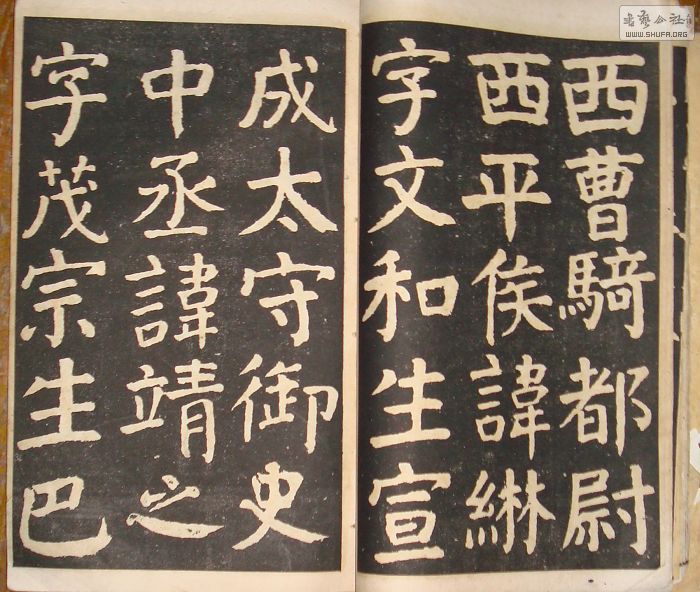 西曹騎都尉
西平侯諱綝
字文和生宣
成太守御史
中丞諱靖之
字茂宗生巴
書藝公社
WWW.SHUFA.ORG